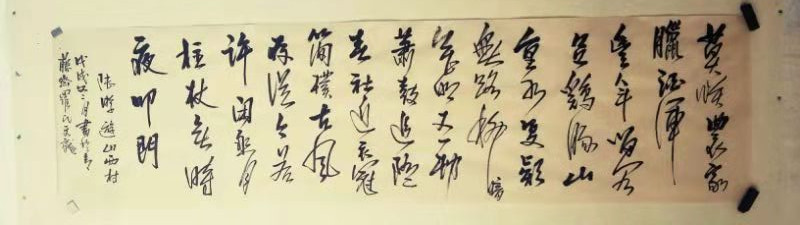 莫笑農家
臘酒渾
豐年留客
足鷄豚山
重水复疑
無路柳暗
花明又一村
蕭鼓追隨
春社近衣冠
簡樸古風
存從今若
許閑乘月
拄杖無時
夜叩門
陸游遊山西村
戊戌二月書於
羅氏